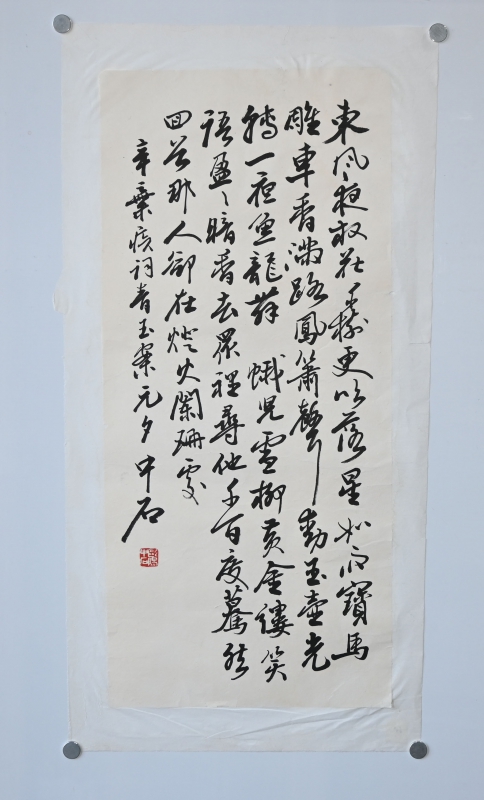 東風夜放花千樹更吹落星如雨寶馬
雕車香滿路鳳簫聲動玉壺光
轉一夜魚龍舞 蛾兒雪柳黃金縷笑
語盈〻暗香去眾裡尋他千百度驀然
回首那人卻在燈火闌珊處
辛棄疾詞青玉案元夕 中石